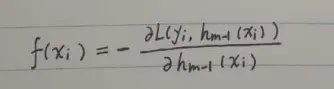 f(x_i) = - \frac{∂L(y_i, h_{m-1}(x_i))}{∂h_{m-1}(x_i)}